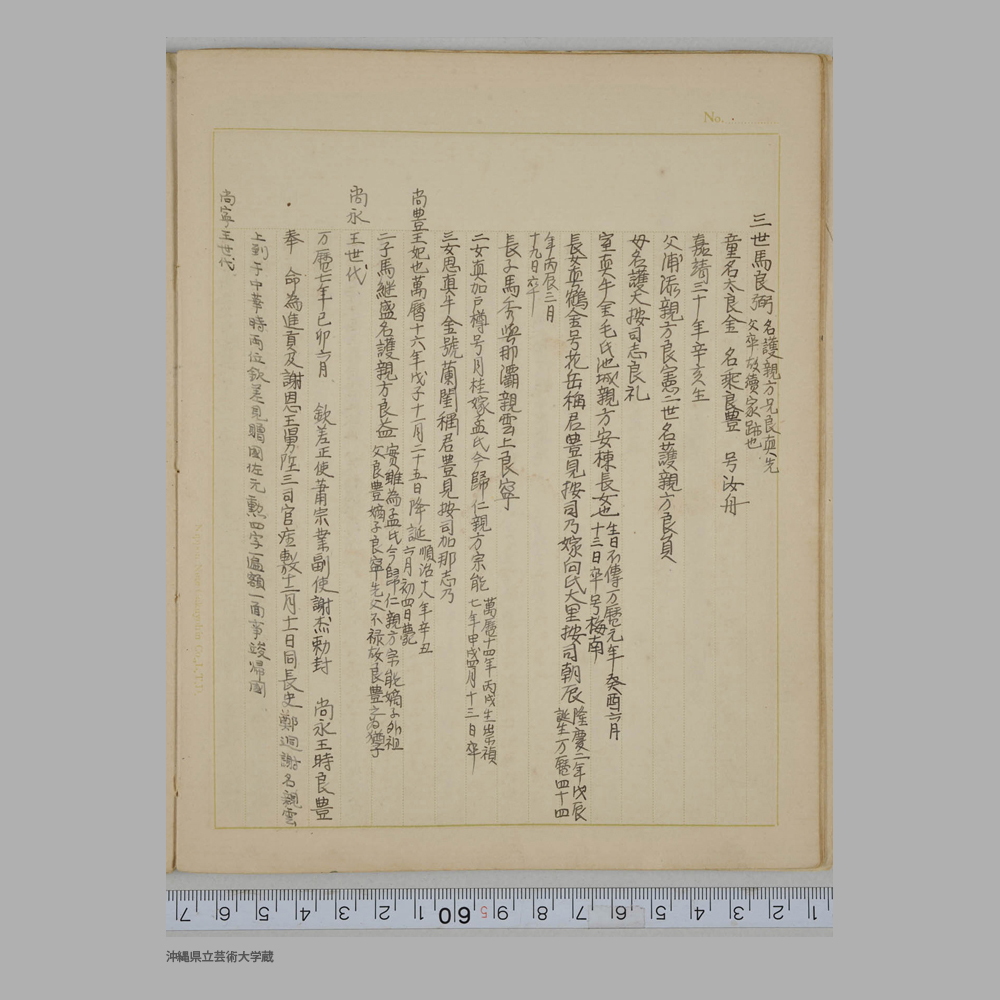 No.
三世馬良弼 名護親方兄良真先
父卒故續家跡也
童名太良金 名乘良豊 号汝舟
嘉靖三十年辛亥生
父浦添親方良憲二世名護親方良員
母名護大按司志良礼
室真牛金毛氏池城親方安棟長女也 生日不傳万暦元年癸酉六月
十三日卒号梅南
長女真鶴金号花岳稱君豊見按司乃嫁向氏大里按司朝辰 隆慶二年戊辰
誕生万暦四十四
年丙辰三月
十九日卒
長子馬秀學那灞親雲上良寧
二女真加戸樽号月桂嫁孟氏今歸仁親方宗能 萬暦十四年丙戌生崇禎
七年甲戌四月十三日卒
三女思真牛金號蘭閨稱君豊見按司加那志乃
尚豊王妃也萬暦十六年戊子十一月二十五日降誕 順治十八年辛丑
六月初四日薨
二子馬継盛名護親方良益 實雖為孟氏今歸仁親方宗能嫡子外祖
父良豊嫡子良寧先父不禄故良豊之為孳子
尚永王世代
万暦七年己卯六月 欽差正使蕭宗業副使謝杰勅封 尚永王時良豊
奉 命為進貢及謝恩王舅陞三司官座敷十二月十一日同長史鄭迵謝名親雲
上到于中華時两位欽差見贈國佐元勲四字匾額一面事竣帰國
尚寧王世代
7 6 5 4 3 2 1 60 9 8 7 6 5 4 3 2 1
沖縄県立芸術大学蔵